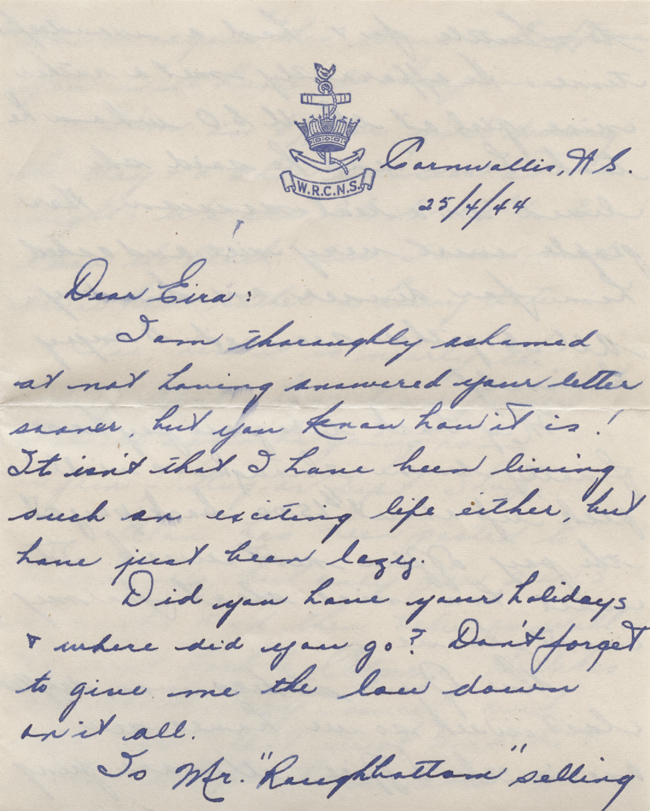 W.R.C.N.S.
Cornwallis, N.S.
25/4/44
Dear Eira:
I am thoroughly ashamed
at not having answered your letter
sooner, but you know how it is!
It isn't that I have been living
such an exciting life either, but
have just been lazy.
Did you have your holidays
& where did you go? Don't forget
to give me the low down
on it all.
Is Mr. "Roughbottom" selling